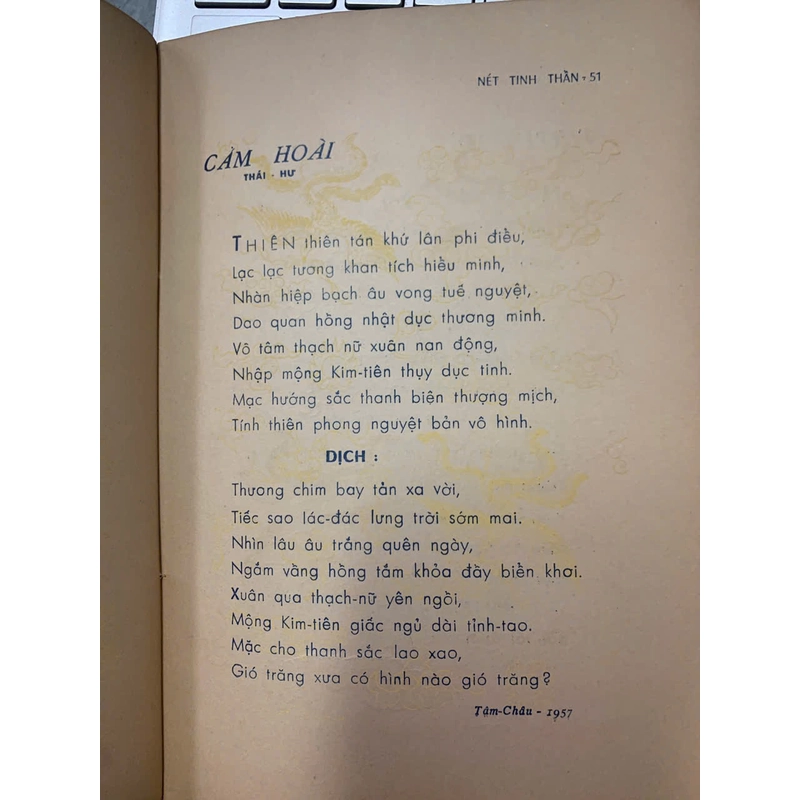 NÉT TINH THẦN, 51
CẢM HOÀI
THÁI - HƯ
THIÊN thiên tán khứ lân phi điểu,
Lạc lạc tương khan tích hiểu minh,
Nhàn hiệp bạch âu vong tuế nguyệt,
Dao quan hồng nhật dục thương minh.
Vô tâm thạch nữ xuân nan động,
Nhập mộng Kim-tiên thụy dục tinh.
Mạc hướng sắc thanh biện thượng mịch,
Tính thiên phong nguyệt bản vô hình.
DỊCH :
Thương chim bay tản xa vời,
Tiếc sao lác-đác lưng trời sớm mai.
Nhìn lâu âu trắng quên ngày,
Ngắm vàng hồng tắm khỏa đầy biển khơi.
Xuân qua thạch-nữ yên ngồi,
Mộng Kim-tiên giấc ngủ dài tỉnh-tao.
Mặc cho thanh sắc lao xao,
Gió trăng xưa có hình nào gió trăng?
Tâm-Châu - 1957